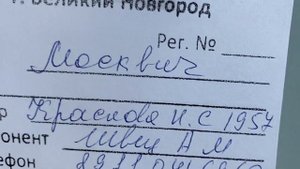 г. Великий Новгород
Рег. №
Москвич
р Краснова Н.С 1957
понент Швец А М
ефон